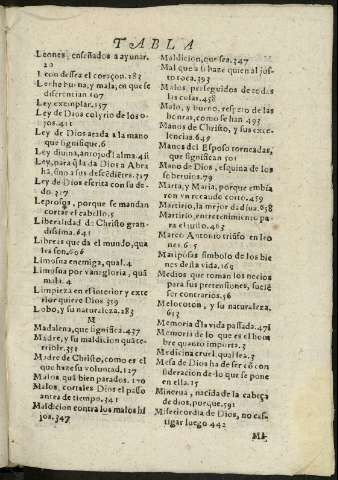 TABLA
Leones enseñados a ayunar.
20
Leon dessea el coraçon. 283
Leche buena, y mala, en que se
diferentian. 107
Ley exemplar. 157
Ley de Dios colyrio de los o-
jos. 411
Ley de Dios atada a la mano
que significa. 6
Ley diuina, antojos del alma. 41
Ley, para q̃ la da Dios a Abra
hã, sino a sus descẽdiẽtes. 317
Ley de Dios escrita con su de-
do. 317
Leprosos, porque se mandan
cortar el cabello. 5
Liberalidad de Christo gran-
dissima. 641
Libreas que da el mundo, qua
les son. 696
Limosna enemiga, qual. 4
Limosna por vanagloria, quã
mala. 4
Limpieza en el interior y exte
rior quiere Dios 319
Lobo, y su naturaleza. 283
M
Madalena, que significa. 437
Madre, y su maldicion quãte-
rrible. 331
Madre de Christo, como es el
que haze su voluntad. 127
Malos, quã bien parados. 170
Malos, cortales Dios el passo
antes de tiempo. 341
Maldicion contra los malos hi
jos. 347
Maldicion, que sea. 347
Mal que a si haze quien al jus-
to toca. 393
Malos, perseguidos de todas
las cosas. 458
Malo, y bueno, respeto de las
honras, como se han 493
Manos de Christo, y sus exce-
lencias. 649
Manos del Esposo torneadas,
que significan 501
Mano de Dios, esquina de los
soberuios. 79
Marta, y Maria, porque embia
ron vn recaudo corto. 459
Martirio, la mejor dadiua. 658
Martirio, entretenimiento pa
ra el
Marco Antonio triũfo en leo
nes. 615
Mariposas simbolo de los bie-
nes desta vida. 163
Medios que toman los necios
para sus pretensiones, suele
ser contrarios. 56
Melocoton, y su naturaleza.
613
Memoria d̃la vida passada. 471
Memoria de lo que es el hom
bre quanto importa. 3
Medicina cruel qual sea. 3
Mesa de Dios ha de ser cõ con
sideracion de lo que se pone
en ella. 15
Minerua, nacida de la cabeça
de dios, porque. 591
Misericordia de Dios, no cas-
tigar luego 442